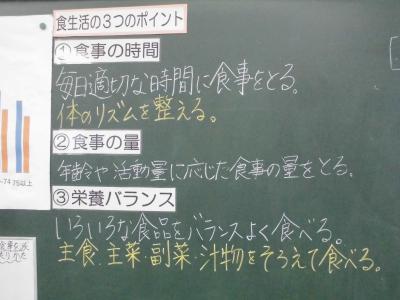 食生活の3つのポイント
①食事の時間
毎日適切な時間に食事をとる。
体のリズムを整える。
②食事の量
年齢や活動量に応じた食事の量をとる。
③栄養バランス
いろいろな食品をバランスよく食べる。
主食・主菜・副菜・汁物をそろえて食べる。
~74 75以上